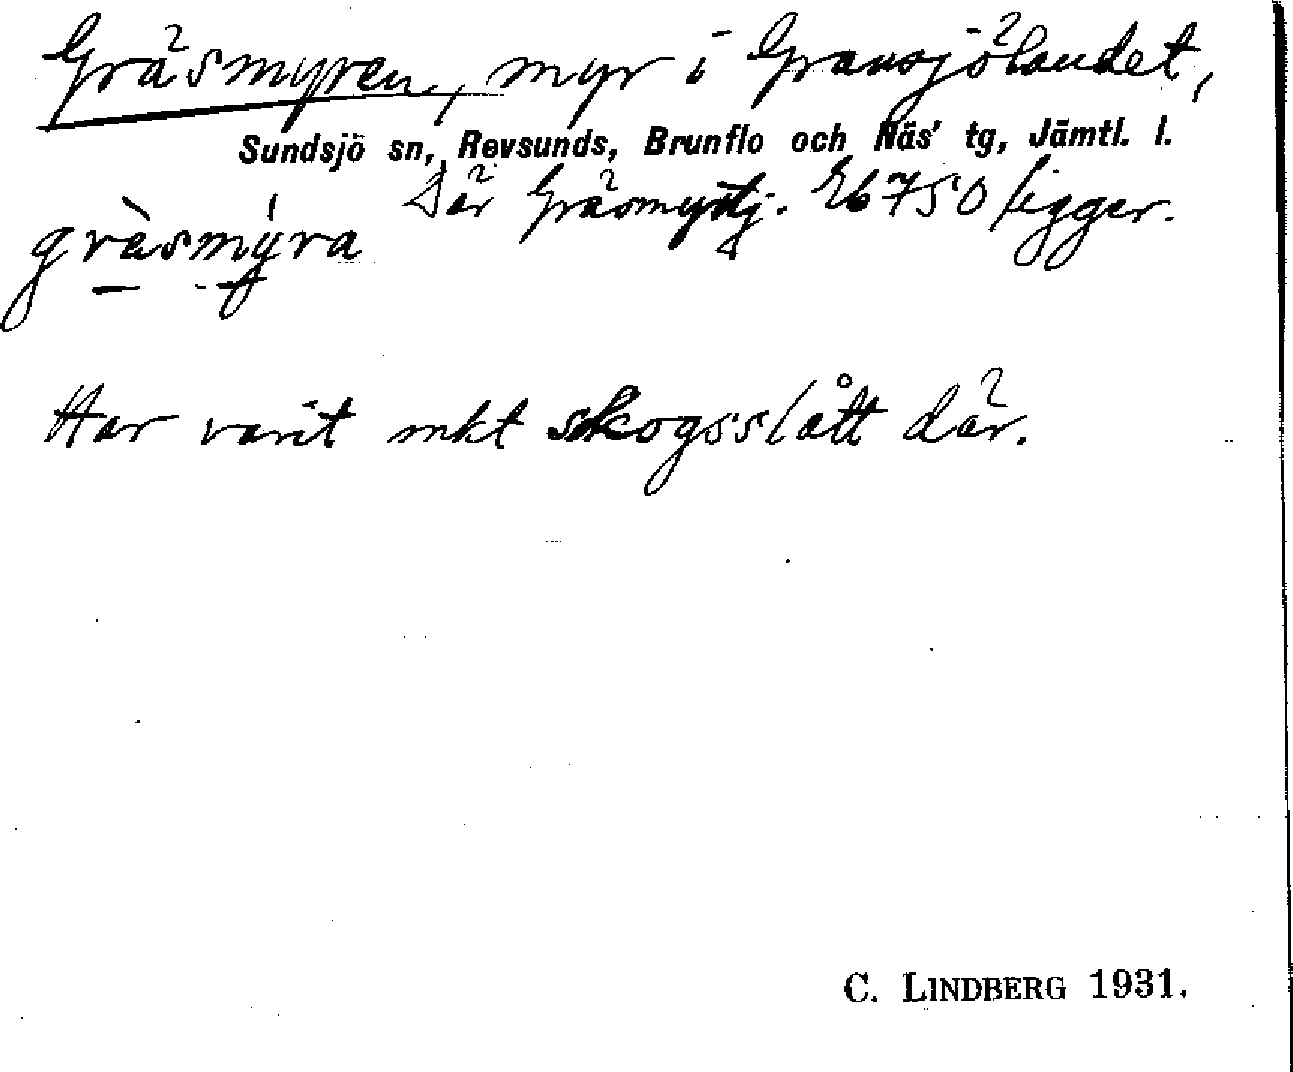 Gräsmyren, myr i Gransjölandet,
Sundsjö sn, Revsunds, Brunflo och Näs' tg, Jämtl. l.
Där Gräsmyrtj. Eb 750 ligger.
grèsmýra
Har varit mkt skogsslått där.
C. LINDBERG 1931.